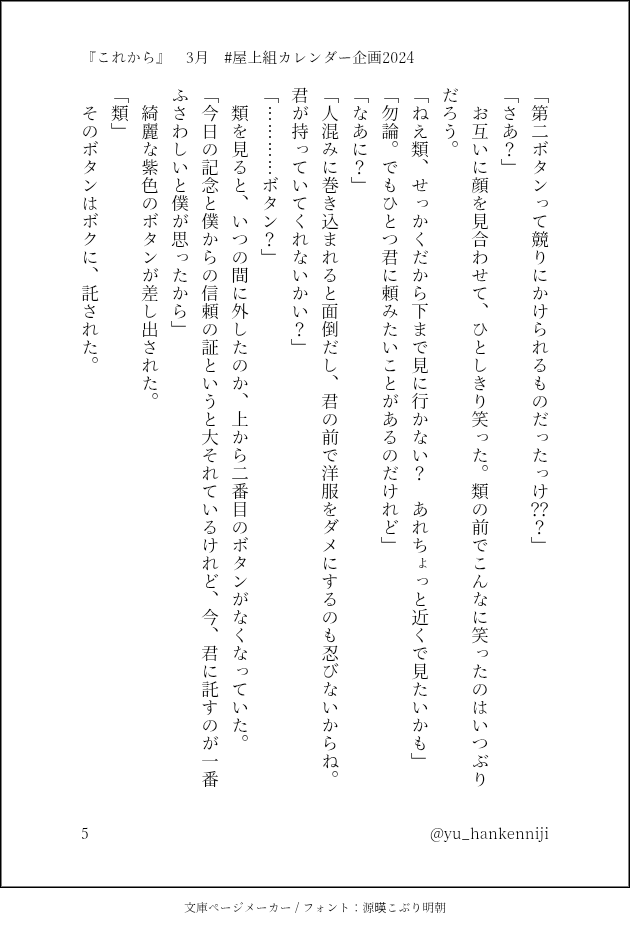 『これから』　3月　#屋上組カレンダー企画2024
「第二ボタンって競りにかけられるものだったっけ???」
「さあ？」
　お互いに顔を見合わせて、ひとしきり笑った。類の前でこんなに笑ったのはいつぶり
だろう。
「ねえ類、せっかくだから下まで見に行かない？　あれちょっと近くで見たいかも」
「勿論。でもひとつ君に頼みたいことがあるのだけれど」
「なあに？」
「人混みに巻き込まれると面倒だし、君の前で洋服をダメにするのも忍びないからね。
君が持っていてくれないかい？」
「…………ボタン？」
　類を見ると、いつの間に外したのか、上から二番目のボタンがなくなっていた。
「今日の記念と僕からの信頼の証というと大それているけれど、今、君に託すのが一番
ふさわしいと僕が思ったから」
　綺麗な紫色のボタンが差し出された。
「類」
　そのボタンはボクに、託された。
5
@yu_hankenniji
文庫ページメーカー / フォント：源暎こぶり明朝